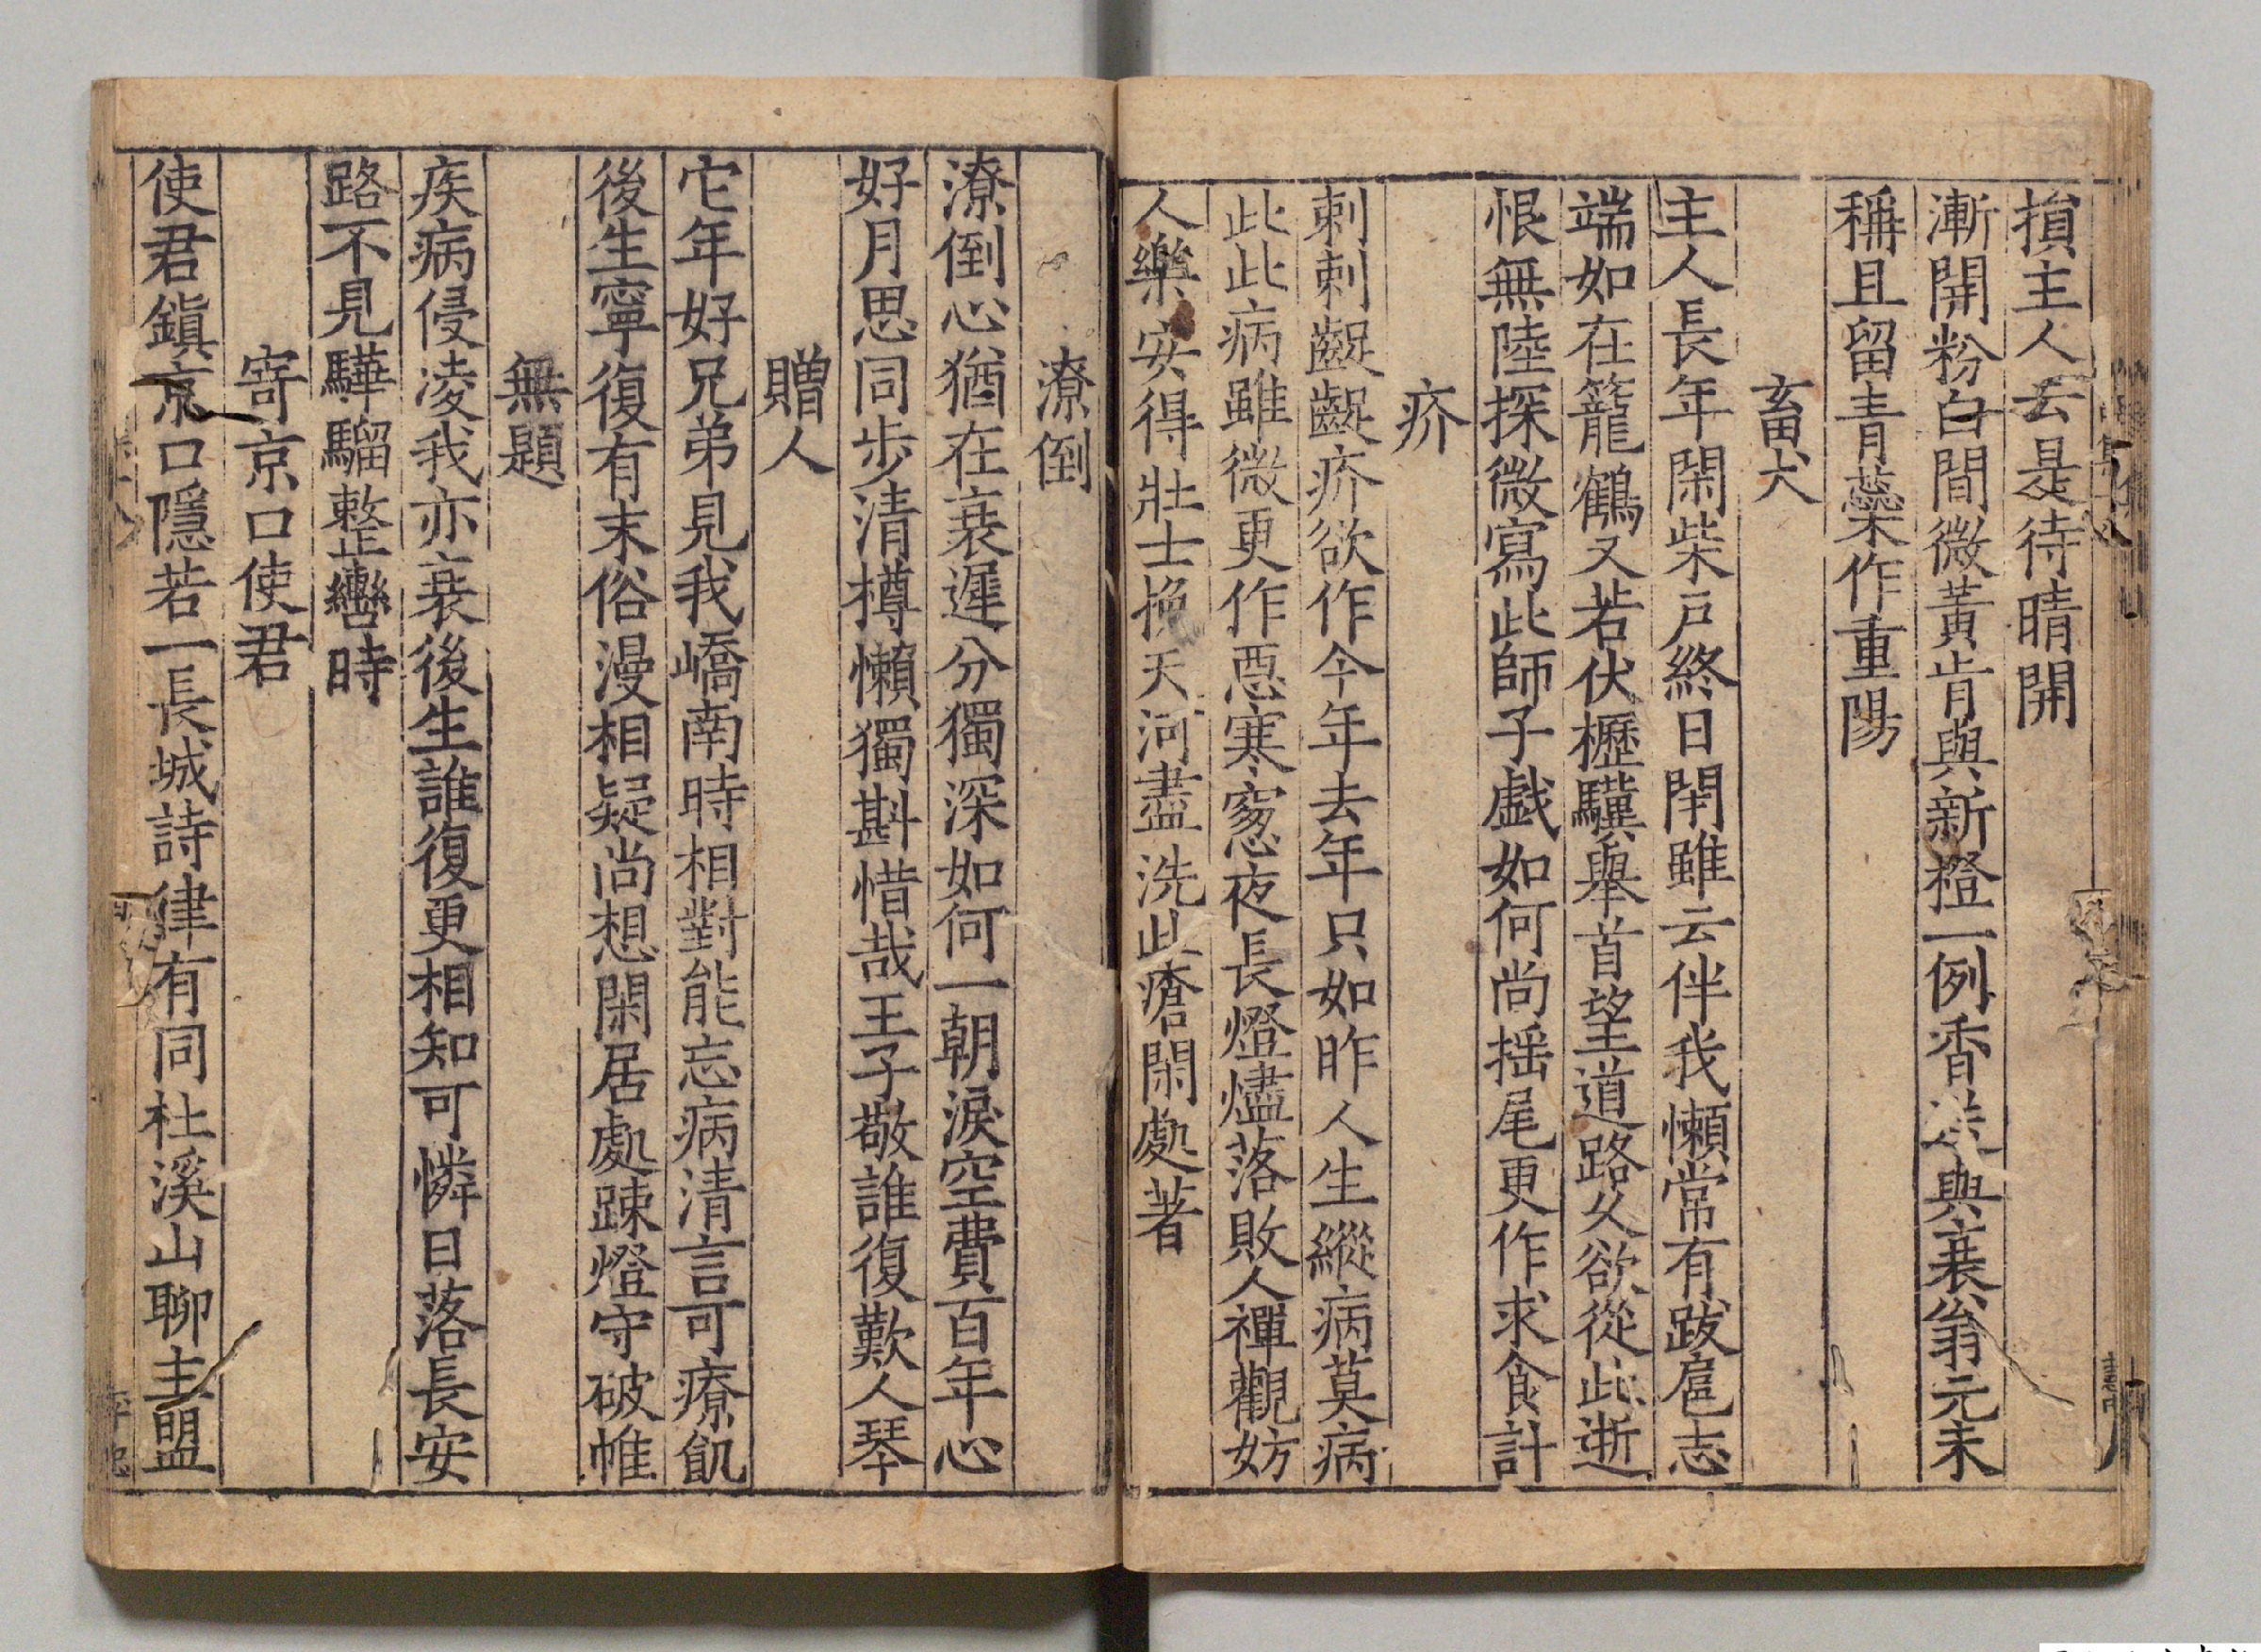 損主人云是待晴開
漸開粉白間微黃肯與新橙一例香 與衰翁元未
稱且留青蘂作重陽
畜犬
主人長年閑柴戶終日閉雖云伴我懶常有跋扈志
端如在籠鶴又若伏櫪驥舉首望道路久欲從此逝
恨無陸探微寫此師子戲如何尚揺尾更作求食計
疥
刺刺齪齪疥欲作今年去年只如昨人生縱病莫病
此此病雖微更作惡寒窻夜長燈燼落敗人禪觀妨
人樂安得壯士挽天河盡洗此瘡閑處著
潦倒
潦倒心猶在衰遲分獨深如何一朝淚空費百年心
好月思同步清樽懶獨斟惜哉王子敬誰復歎人琴
贈人
它年好兄弟見我嶠南時相對能忘病清言可療飢
後生寧復有末俗漫相疑尚想閑居處踈燈守破帷
無題
疾病侵凌我亦衰後生誰復更相知可憐日落長安
路不見驊騮整轡時
寄京口使君
使君鎭京口隱若一長城詩律有同杜溪山聊主盟